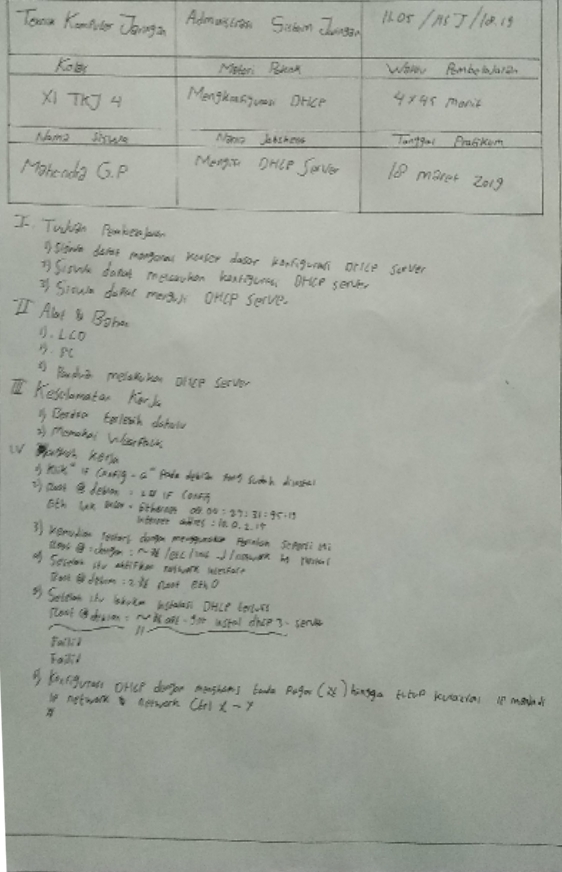 Teknik Komputer Jaringan
Administrasi Sistem Jaringan
11.05 / ASJ / 18.19
Kelas
Materi Pokok
Waktu Pembelajaran
XI TKJ 4
Mengkonfigurasi DHCP
4 x 45 menit
Nama Siswa
Nama Jobsheet
Tanggal Praktikum
Mahendra G.P
Menguji DHCP Server
18 maret 2019
I. Tujuan Pembelajaran
1) Siswa dapat mengenai konsep dasar konfigurasi DHCP server
2) Siswa dapat melakukan konfigurasi DHCP server
3) Siswa dapat menguji DHCP Server
II Alat & Bahan
1). LCD
2). PC
3) melakukan DHCP server
III Keselamatan Kerja
1) Berdoa terlebih dahulu
2) Memakai
IV Kerja
1) Klik " IF Config - a" Pada debian yang sudah diinstal
2) Root @ debian : IF Config
Eth Ethernet 08.00:27:31:95:19
internet : 10.0.2.15
3) Kemudian dengan menggunakan Perintah Seperti ini
4) Setelah itu aktifkan network interface
Root @ debian : Eth 0
5) Setelah itu lakukan instalasi DHCP
Root @ debian : - get instal dhcp 3 - server
Failid
Failid
6) Konfigurasi DHCP dengan menghapus tanda Pagar hingga tutup kurawal IP menjadi
IP network & network Ctrl X - Y